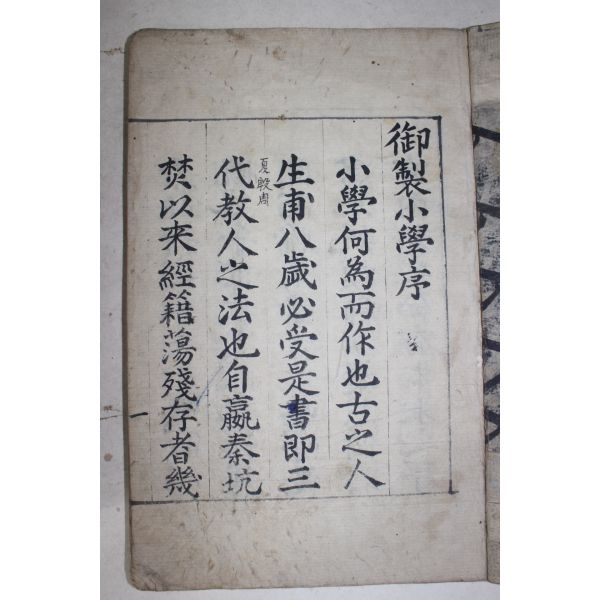 御製小學序
小學何為而作也古之人
生甫八歲必受是書即三
夏殷周
代教人之法也自嬴秦坑
焚以来經籍蕩殘存者幾